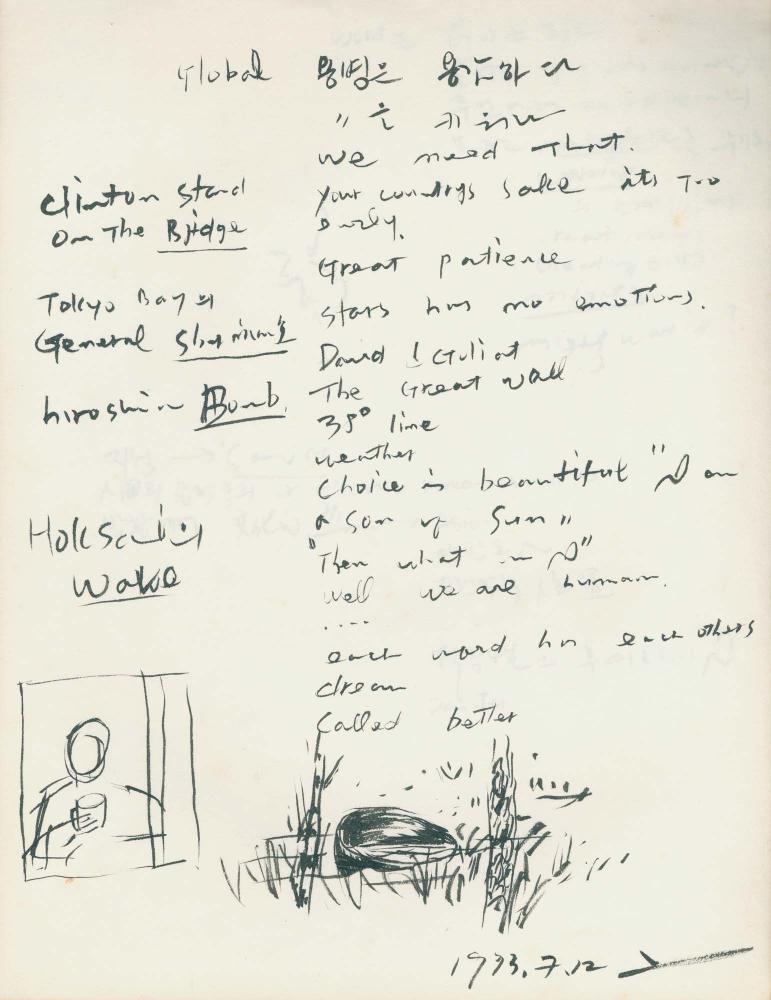 Global 용병은 용감하다
〃 은
we need That.
your countrys sake its Too
early.
Great patience
stars has no emotions.
David & Goliat
The Great wall
38° line
weather
Choice is beautiful "I am
a son of Sun"
"Then what am I"
well we are human.
....
each word has each others
dream
called better
Clinton stand
On The Bridge
Tokyo Bay의
General
hiroshima Bomb.
의
Wake
1993.7.12